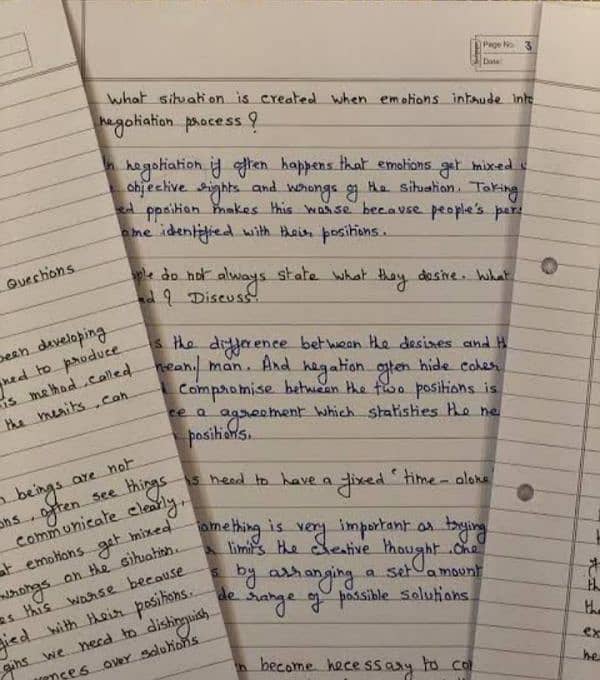 Page No. 3
Date:
What situation is created when emotions intrude into
negotiation process?
In negotiation it often happens that emotions get mixed
objective rights and wrongs of the situation. Taking
ed ppoition makes this worse because people's per
ome identified with their positions.
ple do not always state what they desire. What
? Discuss.
s the difference between the desires and
mean/ man. And negation often hide
compromise between the two positions is
ce a agreement which statisties the ne
positions.
ns need to have a fixed "time - alone
something is very important as trying
limits the creative thought. One
s by arranging a set amount
de range of possible solutions
n become necessary to co
Questions
been developing
ned to produce
is method, called
the merits, can
beings are not
ons, often see things
communicate clearly,
at emotions get mixed
wrongs on the situation.
es this worse because
fied with their positions.
gins we need to distinguish
ences over solutions
the
ex
he